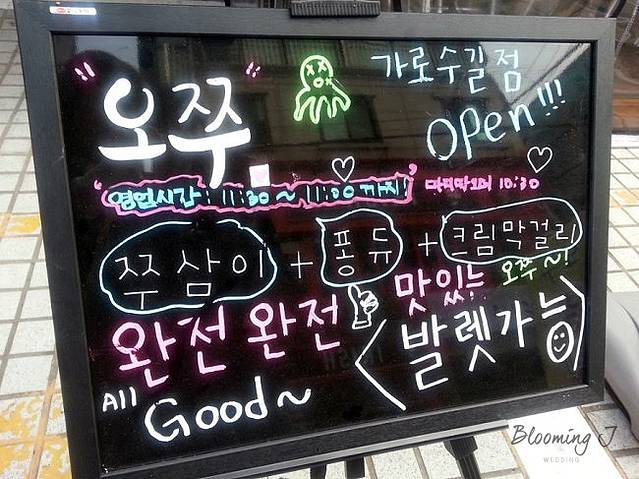 "오쭈"
가로수길점
open!!!
"영업시간: 11:30 ~ 11:00 까지!" 마지막오더 10:30
쭈삼이 + 퐁듀 + 크림막걸리
완전완전 맛있는 오쭈~!
All Good~ <발렛가능>
Blooming J
WEDDING